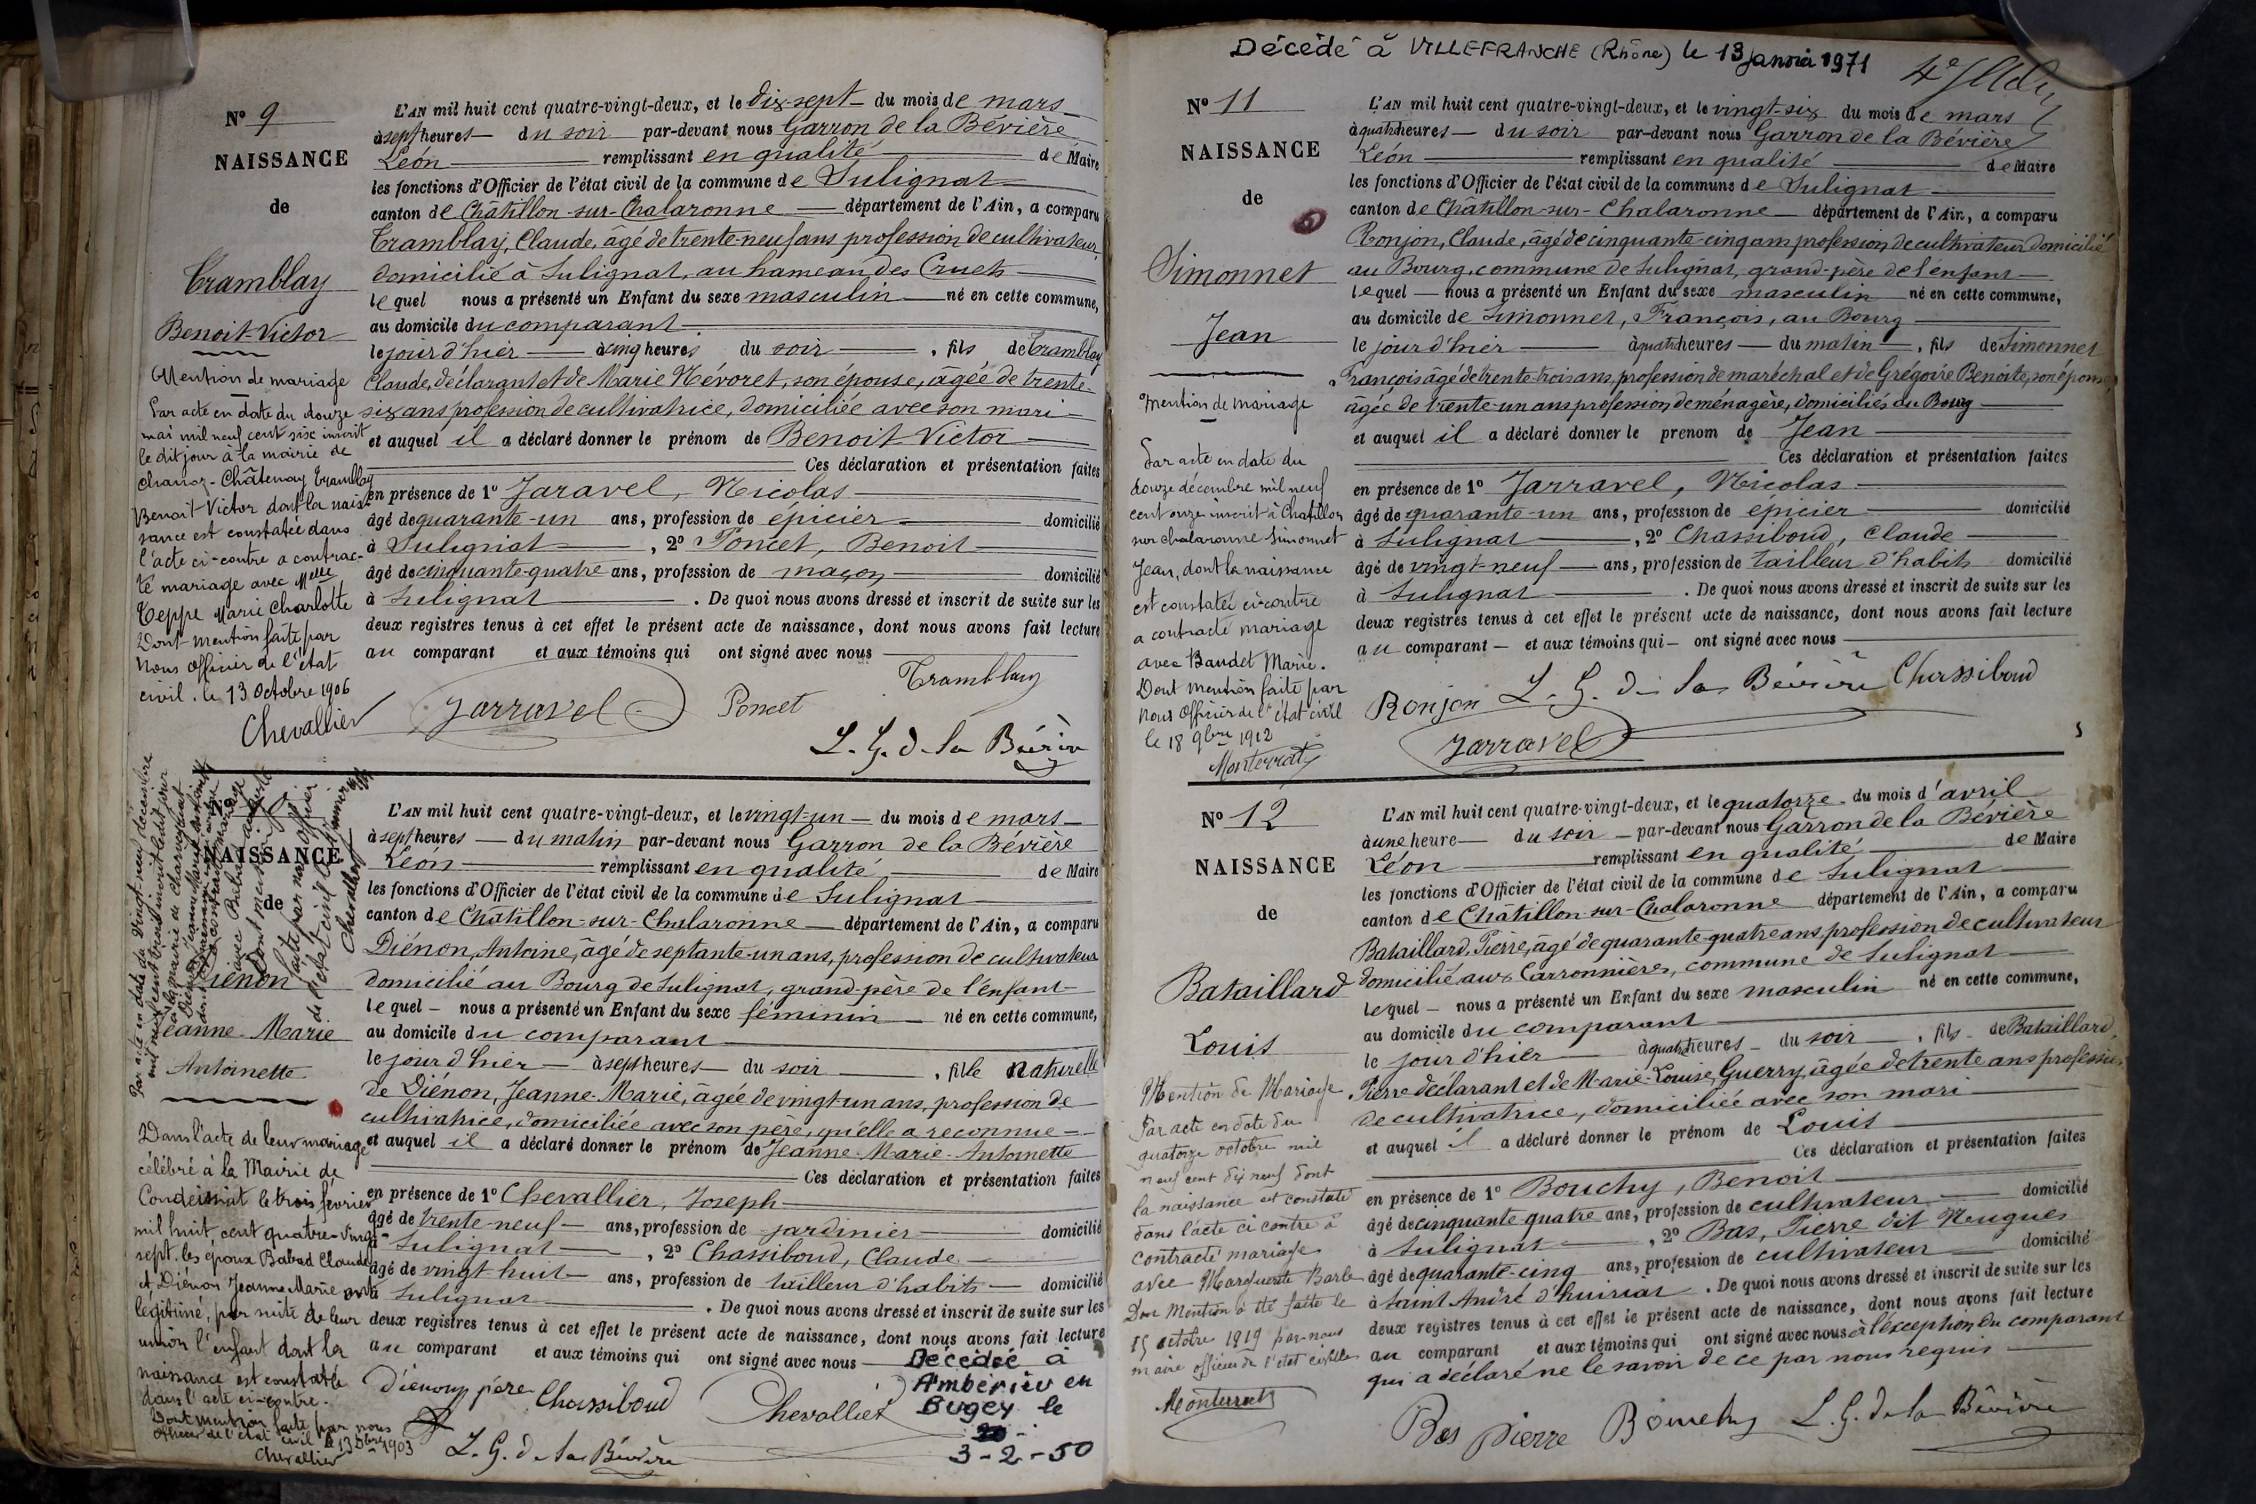 N° 9
NAISSANCE
de
Tramblay
Benoit-Victor
Mention de mariage
Par acte en date du douze
mai mil neuf cent six inscrit
le dit jour à la mairie de
Chanoz-Châtenay Tramblay
Benoit Victor dont la nais-
sance est constatée dans
l'acte ci-contre a contrac-
té mariage avec Melle
Teppe Marie Charlotte
Dont mention faite par
Nous Officier de l'état
civil. le 13 Octobre 1906
Chevallier
L'AN mil huit cent quatre-vingt-deux, et le dix-sept du mois de mars
à sept heures du soir par-devant nous Garron de la Bévière
Léon remplissant en qualité de Maire
les fonctions d'Officier de l'état civil de la commune de Sulignat
canton de Châtillon-sur-Chalaronne département de l'Ain, a comparu
Tramblay, Claude, âgé de trente-neuf ans profession de cultivateur,
domicilié à Sulignat, au hameau des Cruets
lequel nous a présenté un Enfant du sexe masculin né en cette commune,
au domicile du comparant
le jour d'hier à cinq heures du soir, fils de Tramblay
Claude, déclarant et de Marie Névoret, son épouse, âgée de trente-
six ans profession de cultivatrice, domiciliée avec son mari
et auquel il a déclaré donner le prénom de Benoit Victor
Ces déclaration et présentation faites
en présence de 1° Jaravel, Nicolas
âgé de quarante-un ans, profession de épicier domicilié
à Sulignat, 2° Poncet, Benoit
âgé de cinquante-quatre ans, profession de maçon domicilié
à Sulignat. De quoi nous avons dressé et inscrit de suite sur les
deux registres tenus à cet effet le présent acte de naissance, dont nous avons fait lecture
au comparant et aux témoins qui ont signé avec nous
Tramblay
Jarravel Poncet
L. G. de la Bévière
NAISSANCE
de
Diénon
Jeanne-Marie
Antoinette
Par acte en date du vingt neuf décembre
Dont mention
faite par nous officier
de l'état civil le
Chevallier
Dans l'acte de leur mariage
célébré à la Mairie de
Condeissiat le trois février
mil huit cent quatre-vingt-
sept les époux Babad Claude
et Diénon Jeanne Marie ont
légitimé, par suite de leur
union l'enfant dont la
naissance est constatée
dans l'acte ci-contre.
Dont mention faite par nous
officier de l'état civil le 13 Xbre 1903
Chevallier
L'AN mil huit cent quatre-vingt-deux, et le vingt-un du mois de mars
à sept heures du matin par-devant nous Garron de la Bévière
Léon remplissant en qualité de Maire
les fonctions d'Officier de l'état civil de la commune de Sulignat
canton de Châtillon-sur-Chalaronne département de l'Ain, a comparu
Diénon, Antoine, âgé de septante-un ans, profession de cultivateur
domicilié au Bourg de Sulignat, grand-père de l'enfant
lequel nous a présenté un Enfant du sexe féminin né en cette commune,
au domicile du comparant
le jour d'hier à sept heures du soir, fille naturelle
de Diénon, Jeanne-Marie, âgée de vingt un ans, profession de
cultivatrice, domiciliée avec son père, qu'elle a reconnue
et auquel il a déclaré donner le prénom de Jeanne-Marie-Antoinette
Ces déclaration et présentation faites
en présence de 1° Chevallier, Joseph
âgé de trente-neuf ans, profession de jardinier domicilié
à Sulignat, 2° Chassiboud, Claude
âgé de vingt huit ans, profession de tailleur d'habits domicilié
à Sulignat. De quoi nous avons dressé et inscrit de suite sur les
deux registres tenus à cet effet le présent acte de naissance, dont nous avons fait lecture
au comparant et aux témoins qui ont signé avec nous
Diénon père Chassiboud Chevallier
L. G. de la Bévière
Décédée à
Ambérieu en
Bugey le
3-2-50
Décédé à VILLEFRANCHE (Rhône) le 13 janvier 1971
N° 11
NAISSANCE
de
Simonnet
Jean
Mention de mariage
Par acte en date du
douze décembre mil neuf
cent onze inscrit à Chatillon
sur chalaronne Simonnet
Jean, dont la naissance
est constatée ci-contre
a contracté mariage
avec Baudet Marie.
Dont mention faite par
Nous Officier de l'état civil
le 18 9bre 1912
Monterrat
L'AN mil huit cent quatre-vingt-deux, et le vingt-six du mois de mars
à quatre heures du soir par-devant nous Garron de la Bévière
Léon remplissant en qualité de Maire
les fonctions d'Officier de l'état civil de la commune de Sulignat
canton de Châtillon-sur-Chalaronne département de l'Ain, a comparu
Ronjon, Claude, âgé de cinquante-cinq ans profession de cultivateur domicilié
au Bourg, commune de Sulignat, grand-père de l'enfant
lequel nous a présenté un Enfant du sexe masculin né en cette commune,
au domicile de Simonnet, François, au Bourg
le jour d'hier à quatre heures du matin, fils de Simonnet
François âgé de trente-trois ans, profession de maréchal et de Grégoire Benoite, son épouse
âgée de trente-un ans profession de ménagère, domiciliés au Bourg
et auquel il a déclaré donner le prenom de Jean
Ces déclaration et présentation faites
en présence de 1° Jarravel, Nicolas
âgé de quarante-un ans, profession de épicier domicilié
à Sulignat, 2° Chassiboud, Claude
âgé de vingt-neuf ans, profession de tailleur d'habits domicilié
à Sulignat. De quoi nous avons dressé et inscrit de suite sur les
deux registres tenus à cet effet le présent acte de naissance, dont nous avons fait lecture
au comparant et aux témoins qui ont signé avec nous
Ronjon L. G. de la Bévière Chassiboud
Jarravel
N° 12
NAISSANCE
de
Bataillard
Louis
Mention de Mariage
Par acte en date du
quatorze octobre mil
neuf cent dix neuf dont
la naissance est constaté
dans l'acte ci contre à
contracté mariage
avec Marguerite Barbe
Dont Mention a été faite le
15 octobre 1919 par nous
maire officier de l'état civil
Monterrat
L'AN mil huit cent quatre-vingt-deux, et le quatorze du mois d'avril
à une heure du soir par-devant nous Garron de la Bévière
Léon remplissant en qualité de Maire
les fonctions d'Officier de l'état civil de la commune de Sulignat
canton de Châtillon-sur-Chalaronne département de l'Ain, a comparu
Bataillard, Pierre, âgé de quarante-quatre ans, profession de cultivateur
domicilié aux Carronnières, commune de Sulignat
lequel nous a présenté un Enfant du sexe masculin né en cette commune,
au domicile du comparant
le jour d'hier à quatre heures du soir, fils de Bataillard,
Pierre déclarant et de Marie-Louise Guerry, âgée de trente ans profession
de cultivatrice, domiciliée avec son mari
et auquel il a déclaré donner le prénom de Louis
Ces déclaration et présentation faites
en présence de 1° Bouchy, Benoit
âgé de cinquante quatre ans, profession de cultivateur domicilié
à Sulignat, 2° Bas, Pierre dit Neugues
âgé de quarante-cinq ans, profession de cultivateur domicilié
à Saint André d'huiriat. De quoi nous avons dressé et inscrit de suite sur les
deux registres tenus à cet effet le présent acte de naissance, dont nous avons fait lecture
au comparant et aux témoins qui ont signé avec nous à l'exception du comparant
qui a déclaré ne le savoir de ce par nous requis
Bas Pierre Bouchy L. G. de la Bévière